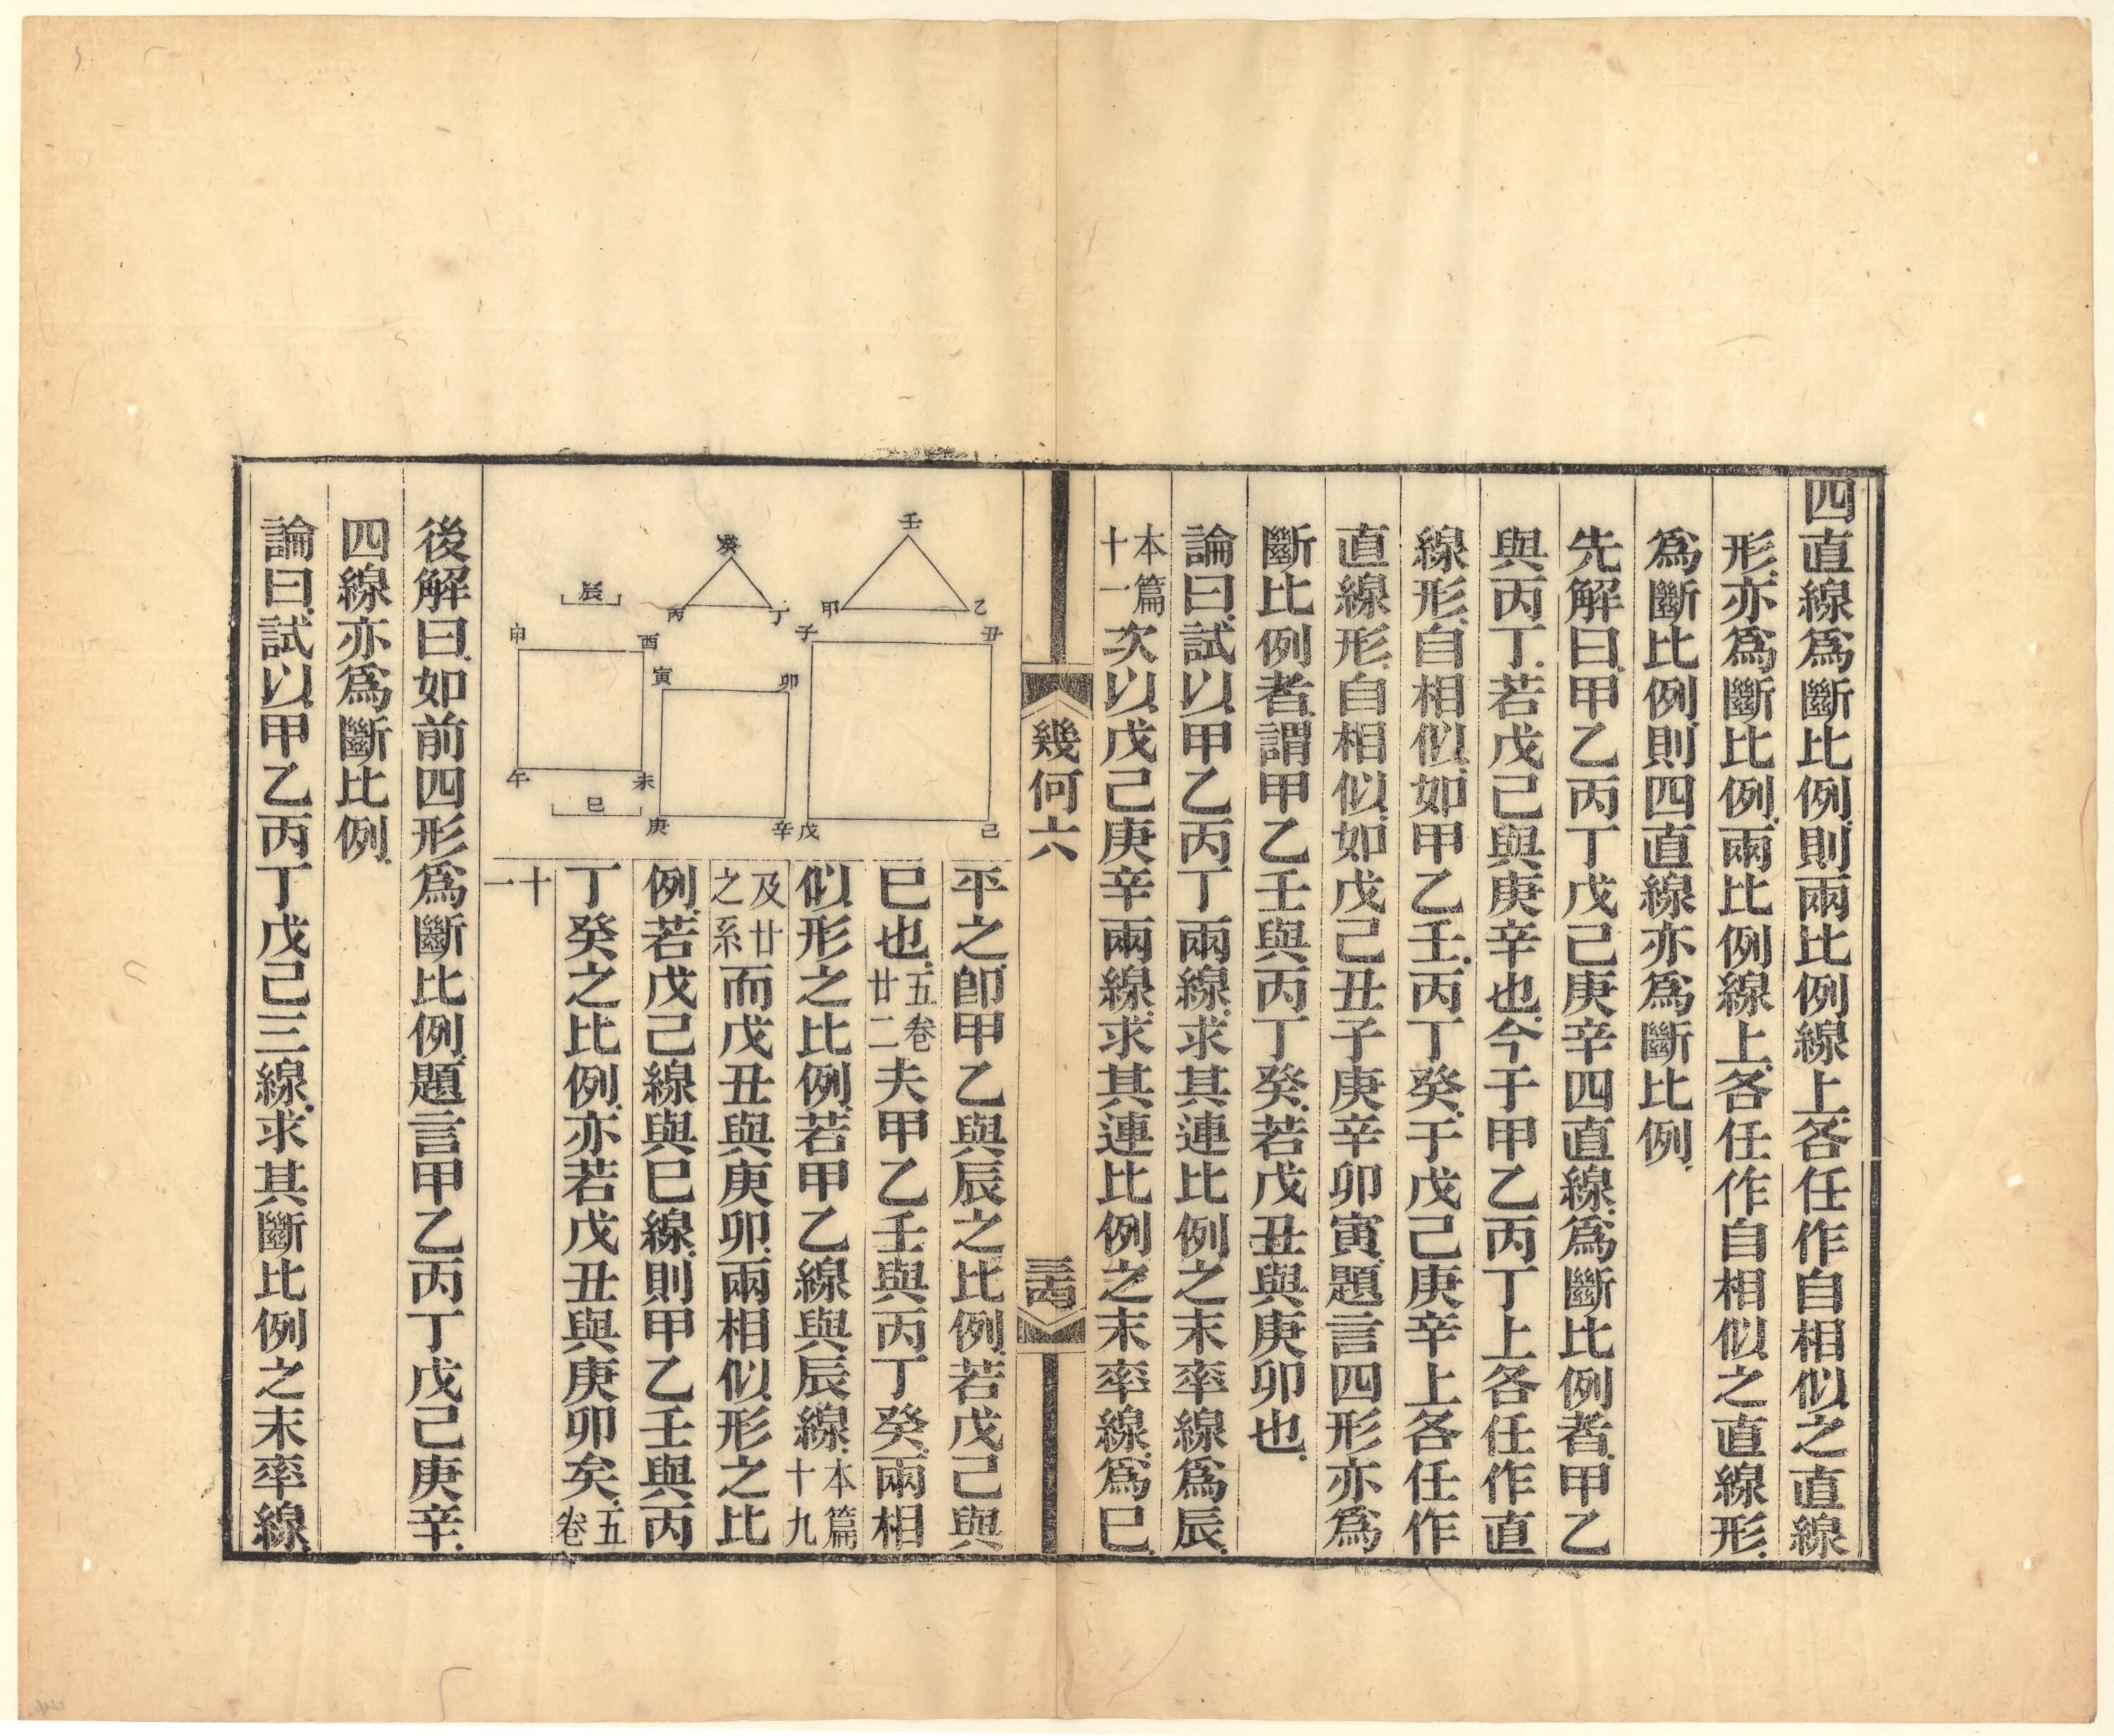 四直線爲斷比例則兩比例線上各任作自相似之直線
形亦爲斷比例兩比例線上各任作自相似之直線形
爲斷比例則四直線亦爲斷比例
先解曰甲乙丙丁戊己庚辛四直線爲斷比例者甲乙
與丙丁若戊己與庚辛也今于甲乙丙丁上各任作直
線形自相似如甲乙壬丙丁癸于戊己庚辛上各任作
直線形自相似如戊己丑子庚辛卯寅題言四形亦爲
斷比例者謂甲乙壬與丙丁癸若戊丑與庚卯也
論曰試以甲乙丙丁兩線求其連比例之末率線爲辰
本篇十一次以戊己庚辛兩線求其連比例之末率線爲巳
幾何六
三十四
壬
甲
乙
癸
丙
丁
辰
子
丑
戊
己
寅
卯
庚
辛
申
酉
午
未
巳
平之卽甲乙與辰之比例若戊己與
巳也五卷廿二夫甲乙壬與丙丁癸兩相
似形之比例若甲乙線與辰線本篇十九
及廿之系而戊丑與庚卯兩相似形之比
例若戊己線與巳線則甲乙壬與丙
丁癸之比例亦若戊丑與庚卯矣五卷
十一
後解曰如前四形爲斷比例題言甲乙丙丁戊己庚辛
四線亦爲斷比例
論曰試以甲乙丙丁戊己三線求其斷比例之末率線